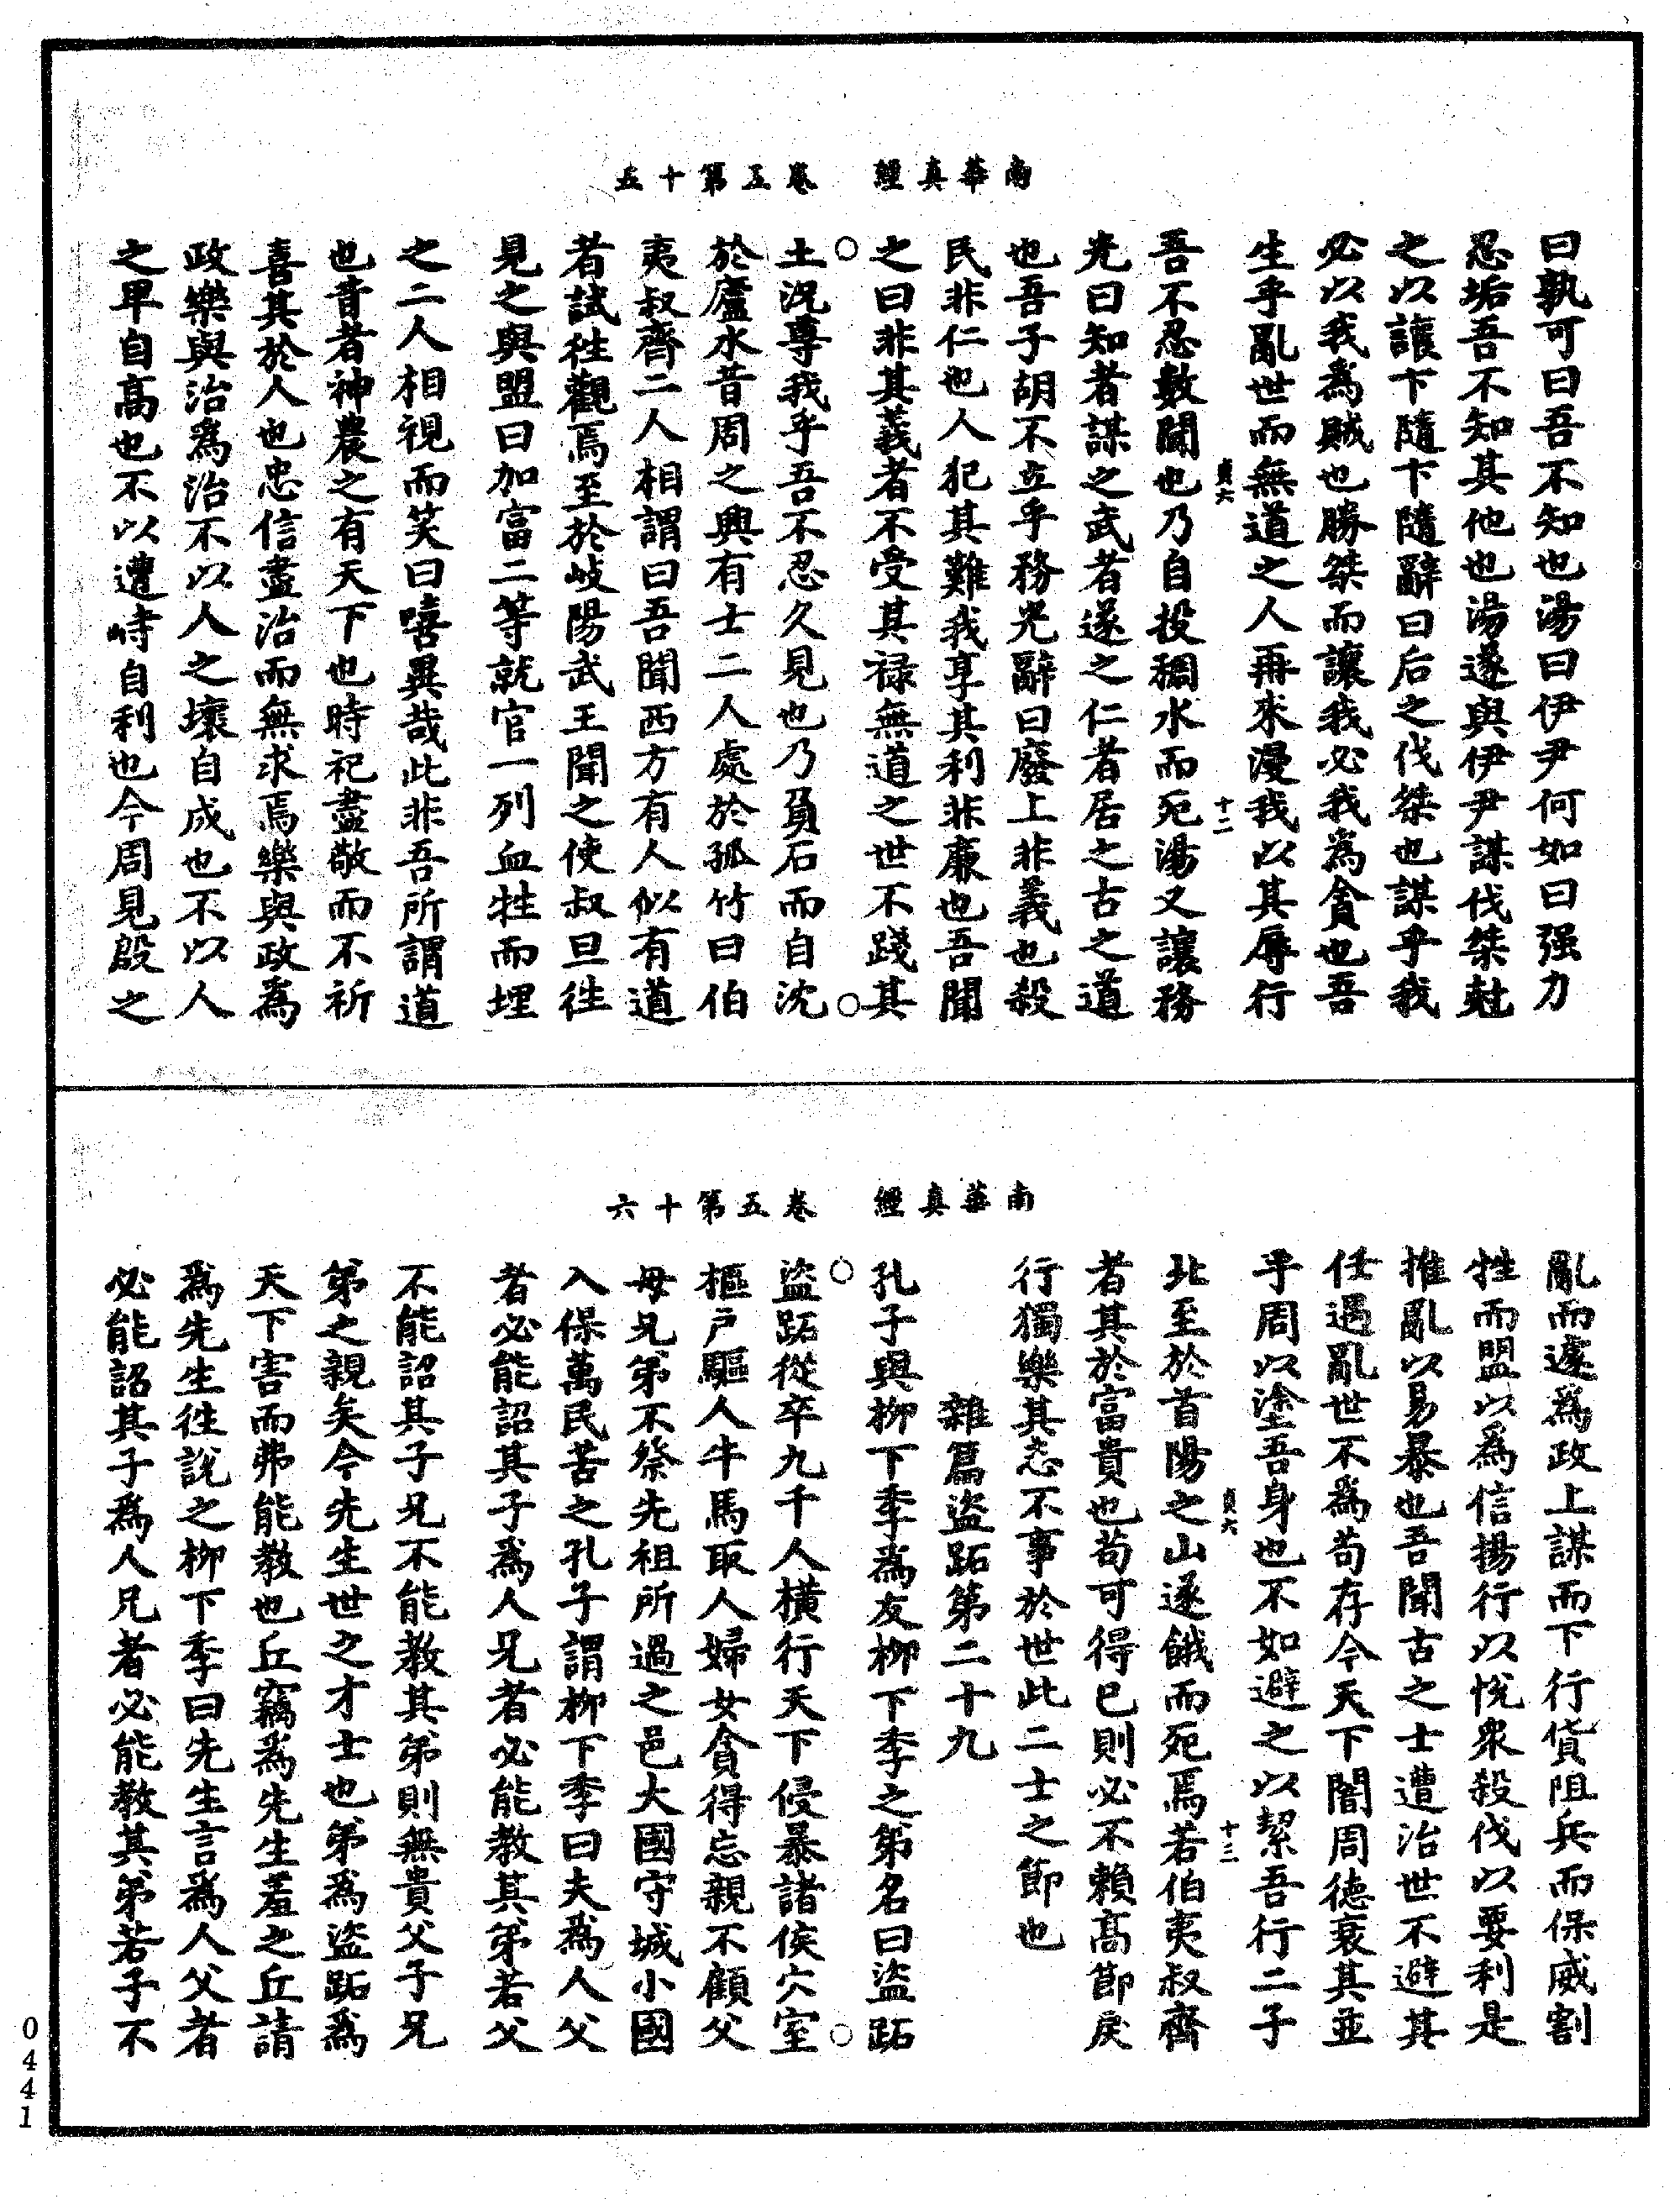 南華真經　卷五第十五
曰孰可曰吾不知也湯曰伊尹何如曰强力
忍垢吾不知其他也湯遂與伊尹謀伐桀尅
之以讓卞隨卞隨辭曰后之伐桀也謀乎我
必以我為賊也勝桀而讓我必我為貪也吾
生乎亂世而無道之人再來漫我以其辱行
貞六　十二
吾不忍數聞也乃自投稠水而死湯又讓務
光曰知者謀之武者遂之仁者居之古之道
也吾子胡不立乎務光辭曰廢上非義也殺
民非仁也人犯其難我享其利非廉也吾聞
之曰非其義者不受其禄無道之世不踐其
土況尊我乎吾不忍久見也乃負石而自沈
於廬水昔周之興有士二人處於孤竹曰伯
夷叔齊二人相謂曰吾聞西方有人似有道
者試往觀焉至於岐陽武王聞之使叔旦往
見之與盟曰加富二等就官一列血牲而埋
之二人相視而笑曰嘻異哉此非吾所謂道
也昔者神農之有天下也時祀盡敬而不祈
喜其於人也忠信盡治而無求焉樂與政為
政樂與治為治不以人之壞自成也不以人
之卑自高也不以遭時自利也今周見殷之
南華真經　卷五第十六
亂而遽為政上謀而下行貨阻兵而保威割
牲而盟以為信揚行以悅衆殺伐以要利是
推亂以易暴也吾聞古之士遭治世不避其
任遇亂世不為苟存今天下闇周德衰其並
乎周以塗吾身也不如避之以絜吾行二子
貞六　十三
北至於首陽之山遂餓而死焉若伯夷叔齊
者其於富貴也苟可得已則必不賴高節戾
行獨樂其志不事於世此二士之節也
雜篇盜跖第二十九
孔子與柳下季為友柳下季之弟名曰盜跖
盜跖從卒九千人橫行天下侵暴諸侯穴室
樞戶驅人牛馬取人婦女貪得忘親不顧父
母兄弟不祭先祖所過之邑大國守城小國
入保萬民苦之孔子謂柳下季曰夫為人父
者必能詔其子為人兄者必能教其弟若父
不能詔其子兄不能教其弟則無貴父子兄
弟之親矣今先生世之才士也弟為盜跖為
天下害而弗能教也丘竊為先生羞之丘請
為先生往說之柳下季曰先生言為人父者
必能詔其子為人兄者必能教其弟若子不
0441